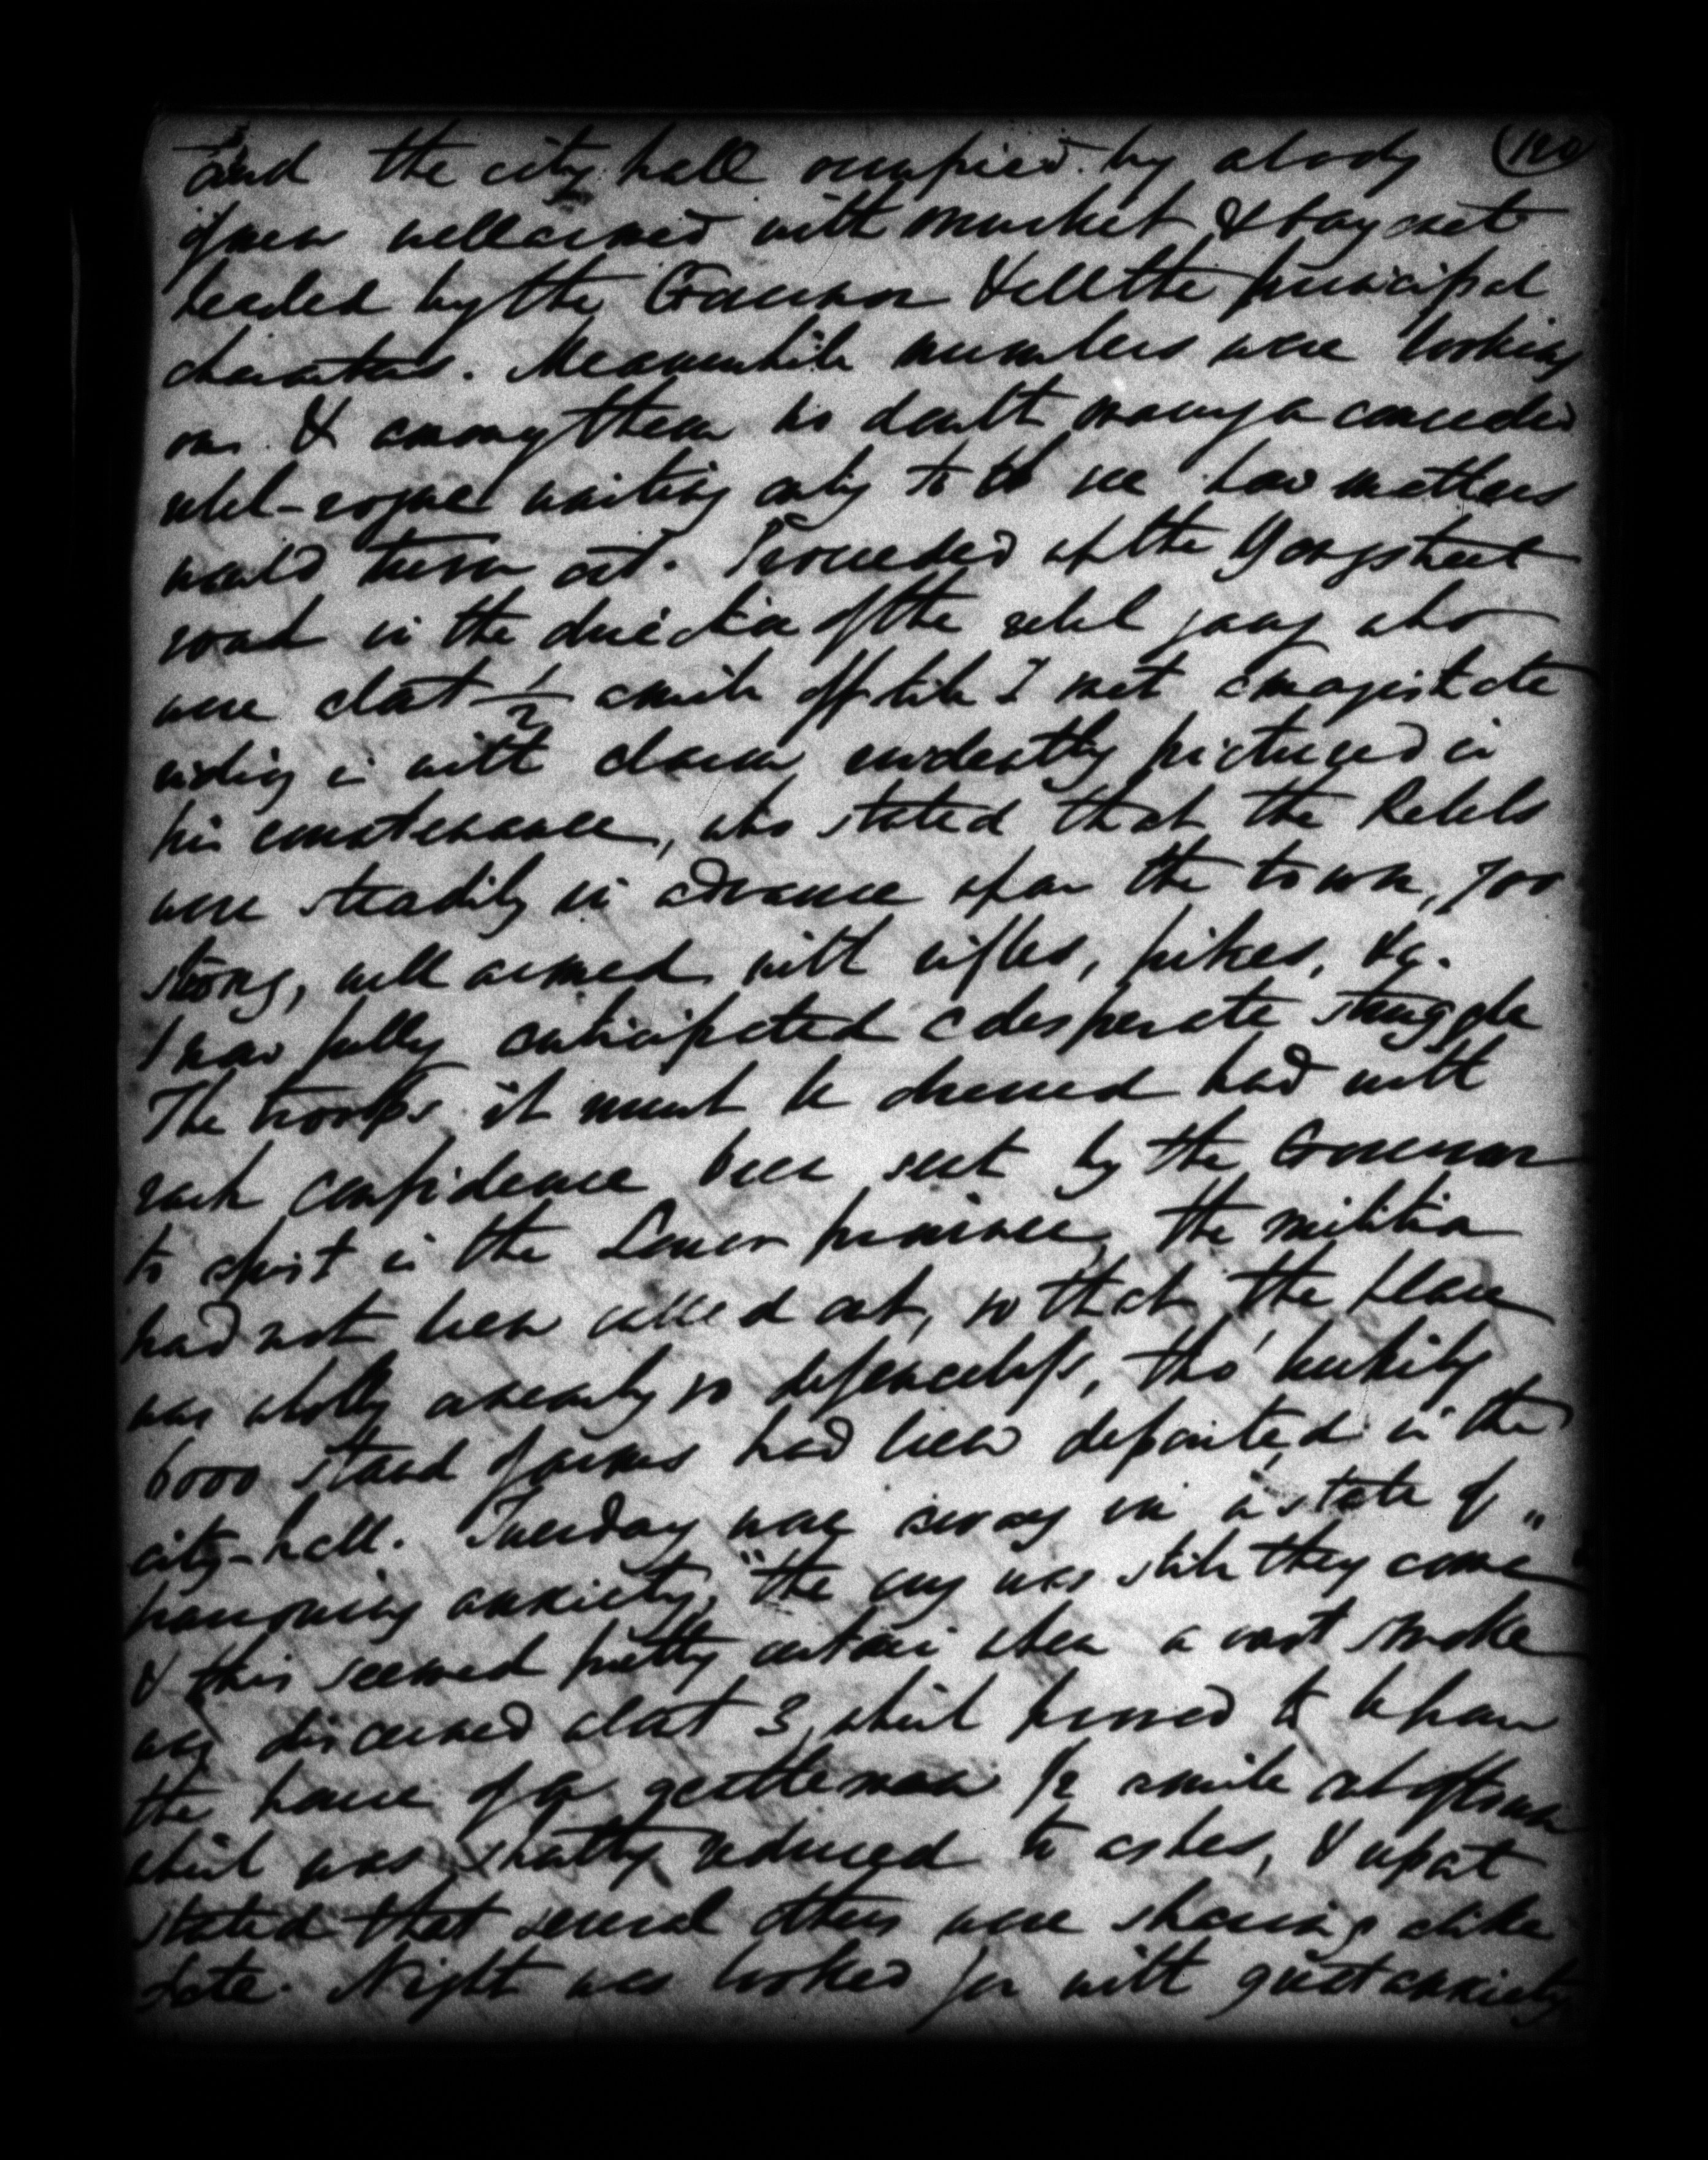 and the city hall occupied by a body (120
of men well armed with musket & bayonet
headed by the Governor & all the principal
characters. Meanwhile numbers were looking
on & among them no doubt many a concealed
rebel-rogue waiting only to see how matters
would turn out. Proceeded up the Yonge street
road in the direction of the rebel gang who
were abat 1/2 a mile off till I met a magistrate
riding in with alarm evidently pictured in
his countenance, who stated that the Rebels
were steadily in advance upon the town, 700
strong, well armed with rifles, pikes, &c.
I now fully anticipated a desperate struggle
The troops it must be observed had with
rash confidence been sent by the Governor
to assist in the Lower province, the militia
had not been called out, so that the place
was wholly or nearly so defenceless, tho' luckily
6000 stand of arms had been deposited in the
city-hall. Tuesday was away in a state of
harrowing anxiety, "the cry was still they come"
& this seemed pretty certain when a vast smoke
was discerned abat 3, which proved to be from
the house of a gentleman 1/2 a mile out of town
which was shortly reduced to ashes, & report
stated that several others were sharing a like
fate. Night was looked for with great anxiety